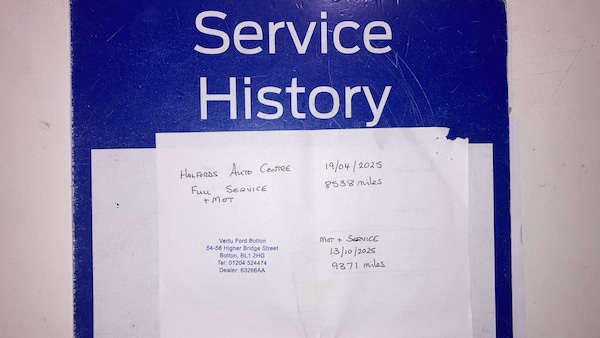 Service
History
HALFORDS AUTO CENTRE 19/04/2025
FULL SERVICE 8538 miles
+ MOT
Vertu Ford Bolton
54-56 Higher Bridge Street
Bolton, BL1 2HG
Tel: 01204 524474
Dealer: 63266AA
MOT + SERVICE
13/10/2025
9371 miles